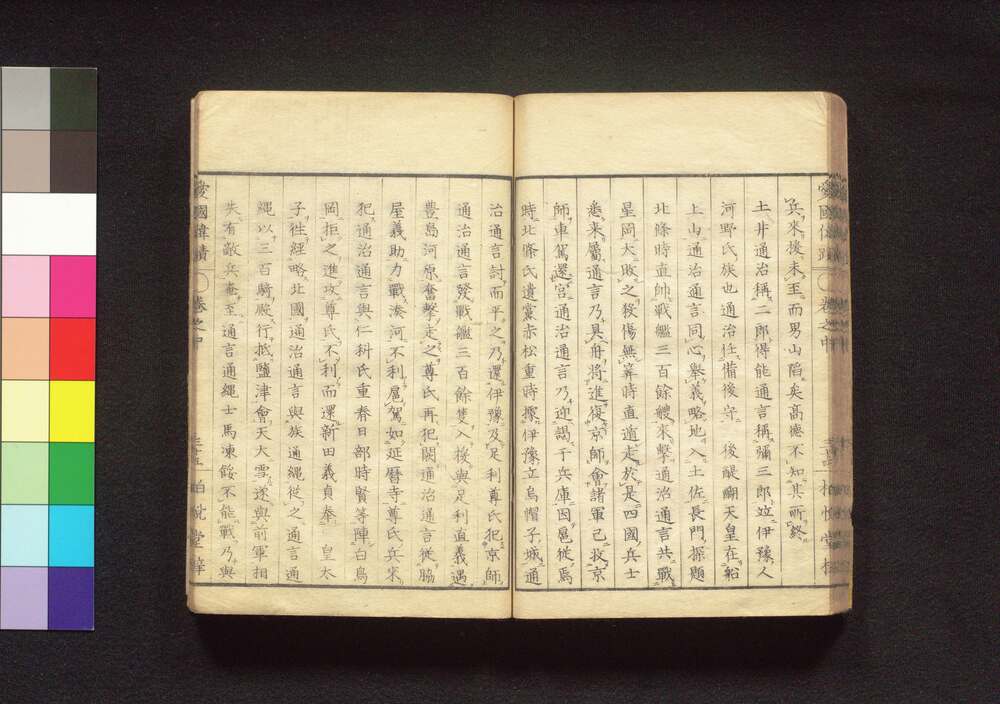 兵來援未至而男山陷矣高德不知其所終
土井通治稱二郎得能通言稱彌三郎竝伊豫人
河野氏族也通治任備後守 後醍醐天皇在船
上山通治通言同心舉義略地入土佐長門探題
北條時直帥戰艦三百餘艘來擊通治通言共戰
星岡大敗之殺傷無算時直遁走於是四國兵士
悉來屬通言乃具舟將進復京師會諸軍已收京
師車駕還宮通治通言乃迎謁于兵庫因扈從焉
時北條氏遺黨赤松重時據伊豫立烏帽子城通
治通言討而平之乃還伊豫及足利尊氏犯京師
通治通言發戰艦三百餘隻入援與足利直義遇
豐島河原奮擊走之尊氏再犯闕通治通言從脇
屋義助力戰湊河不利扈駕如延曆寺尊氏兵來
犯通治通言與仁科氏重春日部時賢等陣白鳥
岡拒之進攻尊氏不利而還新田義貞奉 皇太
子徃經略北國通治通言與族通繩從之通言通
繩以三百騎殿行抵鹽津會天大雪遂與前軍相
失有敵兵奄至通言通繩士馬凍餒不能戰乃與
愛國偉蹟 卷之中 柏悅堂梓